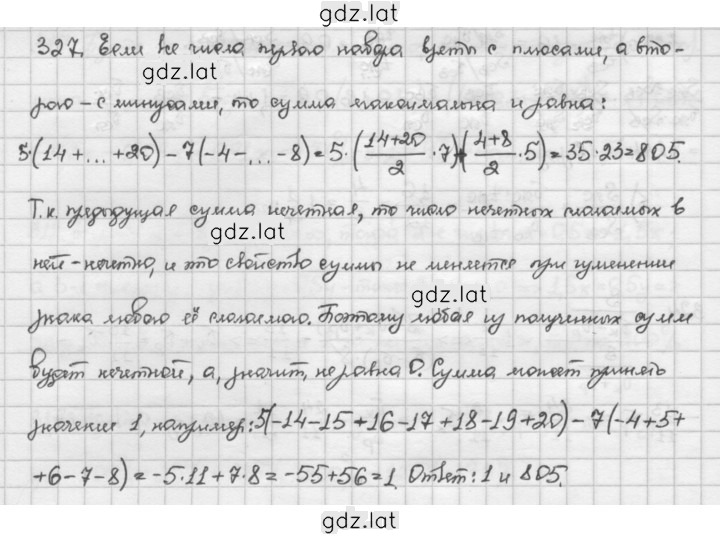 gdz.lat
327. Если все числа первого набора взять с плюсами, а вто-
gdz.lat
рого – с минусами, то сумма максимальна и равна:
5·(14+...+20)–7(–4–...–8)=5·(14+20/2·7)+(4+8/2·5)=35·23=805.
Т.к. предыдущая сумма нечетная, то число нечетных слагаемых в
gdz.lat
ней – нечетно, и это свойство суммы не меняется при изменении
gdz.lat
знака любого её слагаемого. Поэтому любая из полученных сумм
будет нечетной, а, значит, не равна 0. Сумма может принять
значение 1, например: 5(–14–15+16–17+18–19+20)–7(–4+5+
+6–7–8)=–5·11+7·8=–55+56=1. Ответ: 1 и 805.
gdz.lat